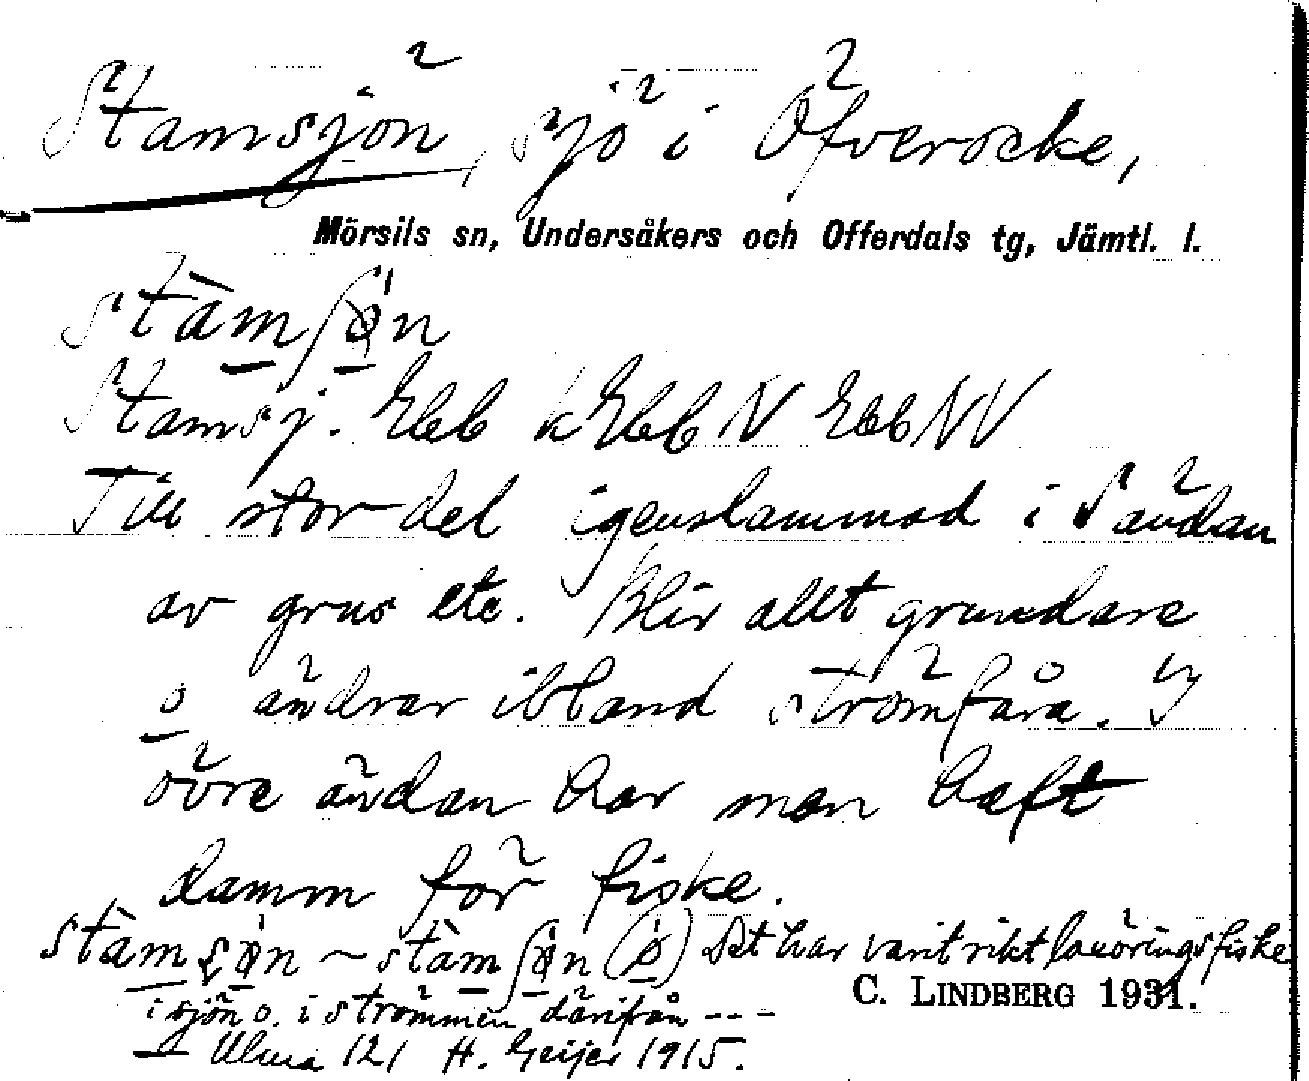 Stamsjön, sjö i Öfverocke,
Mörsils sn, Undersåkers och Offerdals tg, Jämtl. l.
stàmʃø̀n
Stamsj. Ebb k Ebb N Ebb NV
Till stor del igenslammad i S ändan
av grus etc. Blir allt grundare
o ändrar ibland strömfåra. I
övre ändan har man haft
damm för fiske.
stàmʂø̀n ~ stàmʃø̀n (ø̀) Det har varit rikt laxöringsfiske
C. LINDBERG 1931.
i sjön o. i strömmen därifrån ---
— Ulma 121 H. Geijer 1915.